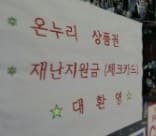 온누리 상품권
재난지원금 (체크카드)
대환영